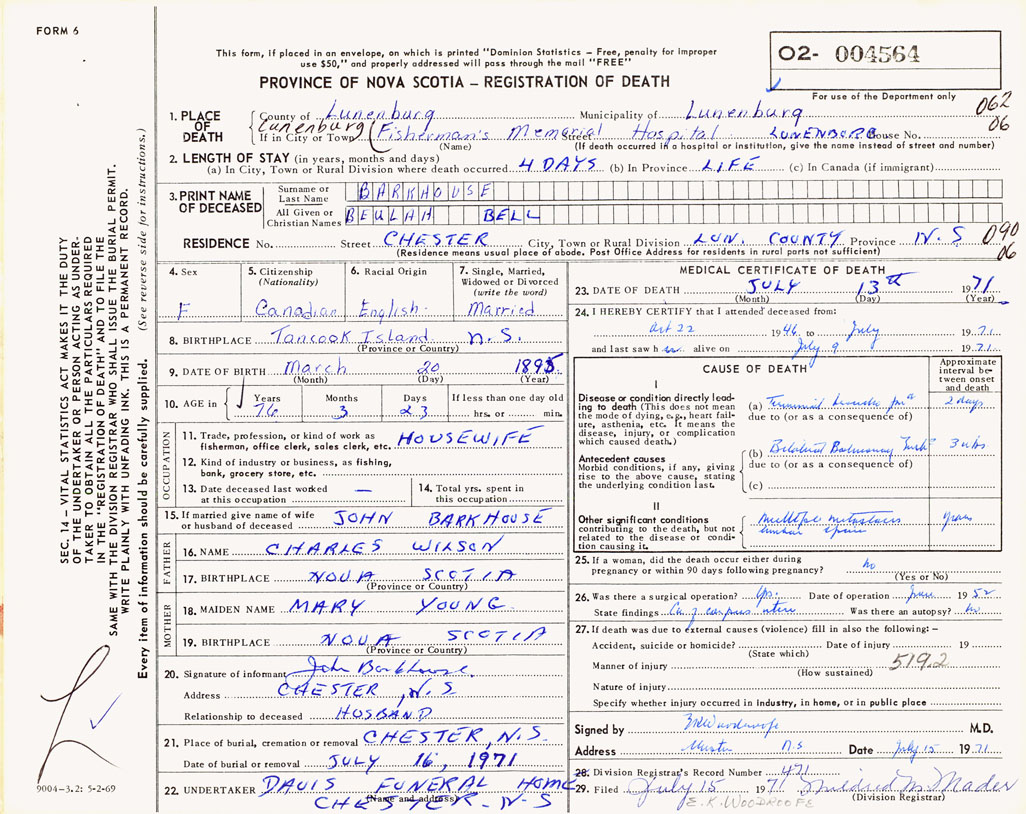 FORM 6
This form, if placed in an envelope, on which is printed "Dominion Statistics – Free, penalty for improper
use $50," and properly addressed will pass through the mail "FREE"
PROVINCE OF NOVA SCOTIA – REGISTRATION OF DEATH
02- 004564
For use of the Department only
062
06
1. PLACE OF DEATH
County of Lunenburg Municipality of Lunenburg
Lunenburg
If in City or Town (Fisherman's Memorial Street Hospital LUNENBURG House No.
(Name) (If death occurred in a hospital or institution, give the name instead of street and number)
2. LENGTH OF STAY (in years, months and days)
(a) In City, Town or Rural Division where death occurred 4 DAYS (b) In Province LIFE (c) In Canada (if immigrant)
3. PRINT NAME OF DECEASED
Surname or Last Name BARKHOUSE
All Given or Christian Names BEULAH BELL
RESIDENCE No. Street CHESTER City, Town or Rural Division LUN. COUNTY Province N.S 090
06
(Residence means usual place of abode. Post Office Address for residents in rural parts not sufficient)
4. Sex F
5. Citizenship (Nationality) Canadian
6. Racial Origin English
7. Single, Married, Widowed or Divorced (write the word) Married
8. BIRTHPLACE Tancook Island N.S.
(Province or Country)
9. DATE OF BIRTH March 20 1895
(Month) (Day) (Year)
10. AGE in Years 76 Months 3 Days 23 If less than one day old hrs. or min.
OCCUPATION
11. Trade, profession, or kind of work as fisherman, office clerk, sales clerk, etc. HOUSEWIFE
12. Kind of industry or business, as fishing, bank, grocery store, etc.
13. Date deceased last worked at this occupation —
14. Total yrs. spent in this occupation
15. If married give name of wife or husband of deceased JOHN BARKHOUSE
FATHER
16. NAME CHARLES WILSON
17. BIRTHPLACE NOVA SCOTIA
(Province or Country)
MOTHER
18. MAIDEN NAME MARY YOUNG
19. BIRTHPLACE NOVA SCOTIA
(Province or Country)
20. Signature of informant John Barkhouse
Address CHESTER, N.S
Relationship to deceased HUSBAND
21. Place of burial, cremation or removal CHESTER, N.S.
Date of burial or removal JULY 16, 1971
22. UNDERTAKER DAVIS FUNERAL HOME
(Name and address)
CHESTER. N.S
MEDICAL CERTIFICATE OF DEATH
23. DATE OF DEATH JULY 13th 1971
(Month) (Day) (Year)
24. I HEREBY CERTIFY that I attended deceased from:
Oct 22 1946 to July 1971
and last saw her alive on July 9 1971
CAUSE OF DEATH
Approximate interval between onset and death
I
Disease or condition directly leading to death (This does not mean the mode of dying, e.g., heart failure, asthenia, etc. It means the disease, injury, or complication which caused death.)
(a) Terminal 2 days
due to (or as a consequence of)
Antecedent causes
Morbid conditions, if any, giving rise to the above cause, stating the underlying condition last.
(b) Bilateral Pulmonary 3 wks
due to (or as a consequence of)
(c)
II
Other significant conditions
contributing to the death, but not related to the disease or condition causing it.
multiple metastasis years
lumbar spine
25. If a woman, did the death occur either during pregnancy or within 90 days following pregnancy? no
(Yes or No)
26. Was there a surgical operation? Yes. Date of operation June 1952
State findings Ca of corpus uteri Was there an autopsy? No
27. If death was due to external causes (violence) fill in also the following:–
Accident, suicide or homicide? Date of injury 19
(State which)
519.2
Manner of injury
(How sustained)
Nature of injury
Specify whether injury occurred in industry, in home, or in public place
Signed by M.D.
Address Chester N.S Date July 15 1971
28. Division Registrar's Record Number 471
29. Filed July 15 1971 Mildred M Mader
(Division Registrar)
E.K. WOODROOFE
SEC. 14 – VITAL STATISTICS ACT MAKES IT THE DUTY
OF THE UNDERTAKER OR PERSON ACTING AS UNDER-
TAKER TO OBTAIN ALL THE PARTICULARS REQUIRED
IN THE "REGISTRATION OF DEATH" AND TO FILE THE
SAME WITH THE DIVISION REGISTRAR WHO SHALL ISSUE THE BURIAL PERMIT.
WRITE PLAINLY WITH UNFADING INK. THIS IS A PERMANENT RECORD.
Every item of information should be carefully supplied. (See reverse side for instructions.)
9004-3.2: 5-2-69